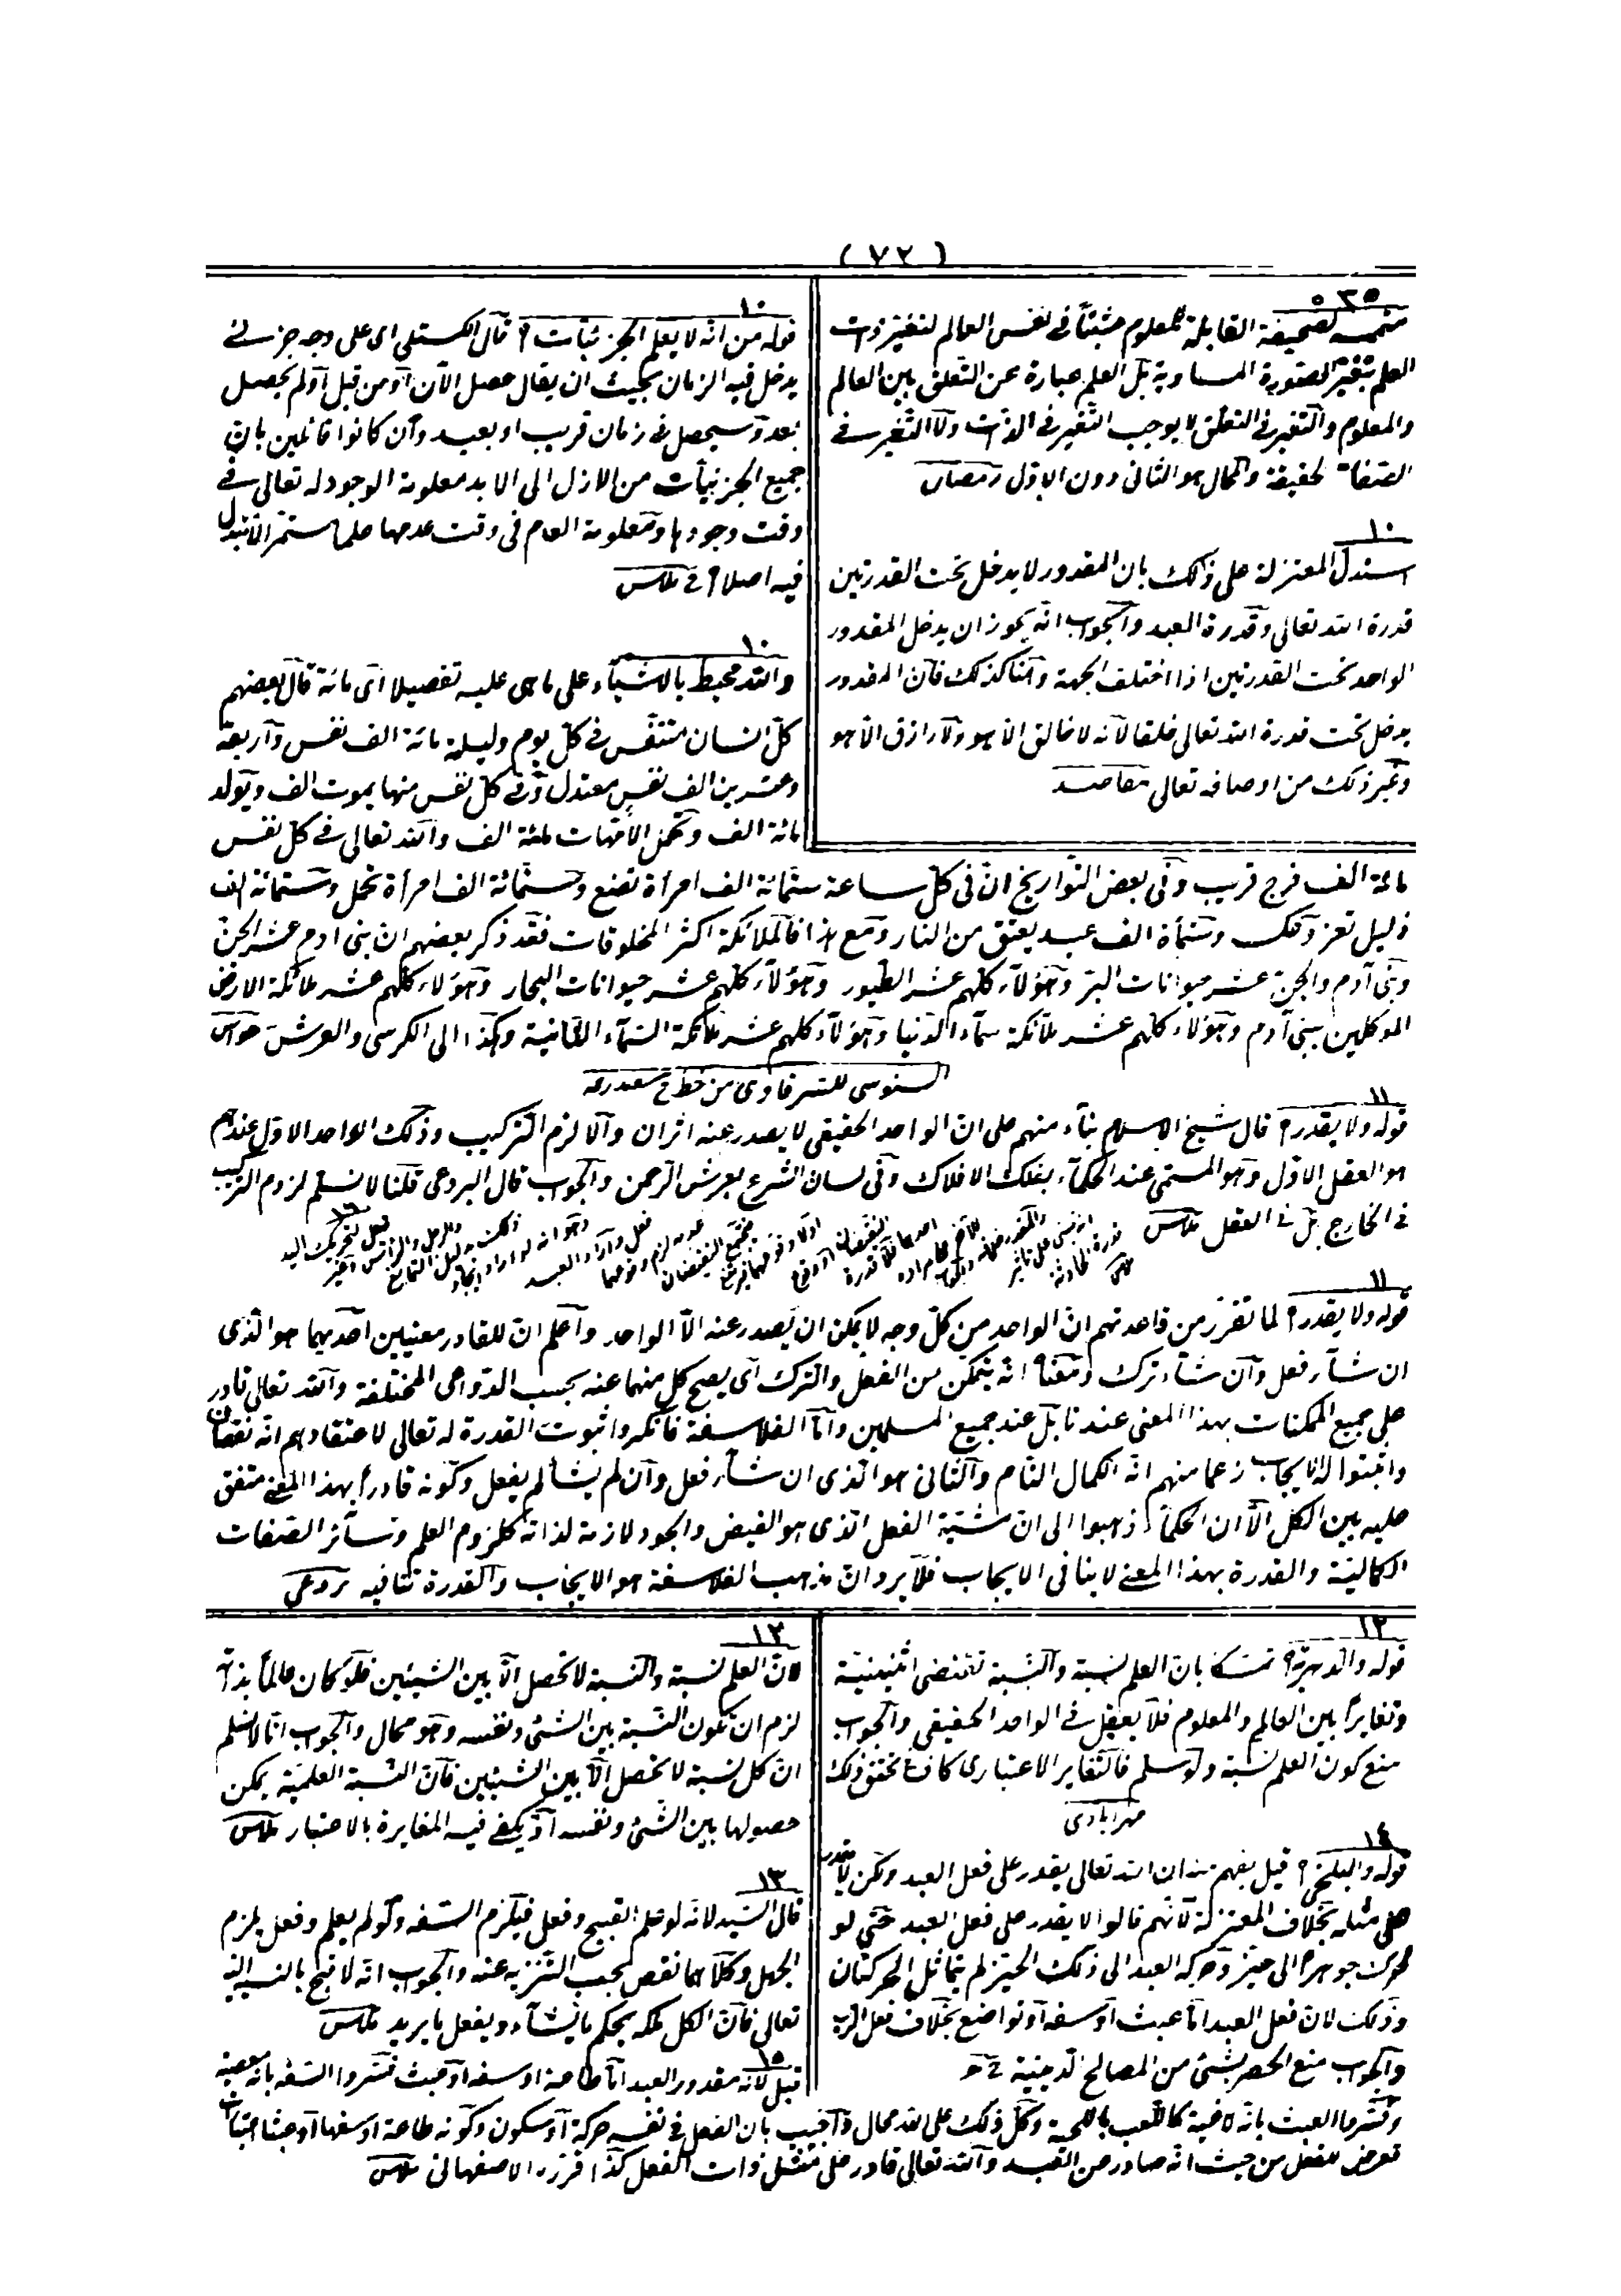 ( ٧٢ )
تتمه لصحيفة القابلة للمعلوم مثبتاً فى نفس العالم لتغير ذات
العلم بتغير الصورة المساوية بل العلم عبارة عن التعلق بين العالم
والمعلوم والتغير فى التعلق لا يوجب التغير فى الذات ولا التغير فى
الصفات الحقيقة والمحال هو الثانى دون الاول رمضان
١٠
استدل المعتزلة على ذلك بان المقدور لا يدخل تحت القدرتين
قدرة الله تعالى وقدرة العبد والجواب انه يجوز ان يدخل المقدور
الواحد تحت القدرتين اذا اختلف الجهة وهنا كذلك فان المقدور
يدخل تحت قدرة الله تعالى خلقا لانه لا خالق الا هو ولا رازق الا هو
وغير ذلك من اوصافه تعالى مقاصد
١٠
قوله من انه لا يعلم الجزئيات ٢ قال الكستلى اى على وجه جزئى
يدخل فيه الزمان بحيث ان يقال حصل الآن او من قبل او لم يحصل
بعد وسيحصل فى زمان قريب او بعيد وان كانوا قائلين بان
جميع الجزئيات من الازل الى الابد معلومة الوجود له تعالى فى
وقت وجودها ومعلومة العدم فى وقت عدمها علما مستمر الا يتبدل
فيه اصلا
١٠
والله محيط بالاشياء على ما هى عليه تفصيلا اى مائة قال بعضهم
كل انسان متنفس فى كل يوم وليلة مائة الف نفس واربعة
وعشرين الف نفس معتدل وفى كل نفس منها يموت الف ويولد
مائة الف وتحمل الامهات مائة الف والله تعالى فى كل نفس
مائة الف فرج قريب وفى بعض التواريخ ان فى كل ساعة ستمائة الف امرأة تضع وستمائة الف امرأة تحمل وستمائة الف
ذليل تعز وستمأة الف عبد يعتق من النار ومع هذا فالملائكة اكثر المخلوقات فقد ذكر بعضهم ان بنى ادم عشر الجن
وبنى آدم والجن عشر حيوانات البر وهؤلاء كلهم عشر الطيور وهؤلاء كلهم عشر حيوانات البحار وهؤلاء كلهم عشر ملائكة الارض
الموكلين ببنى آدم وهؤلاء كلهم عشر ملائكة سماء الدنيا وهؤلاء كلهم عشر ملائكة السماء الثانية وهكذا الى الكرسى والعرش
السنوسى للشرقاوى من خط
١١
قوله ولا يقدر ٢ قال شيخ الاسلام بناء منهم على ان الواحد الحقيقى لا يصدر عنه اثران والا لزم التركيب وذلك الواحد الاول عندهم
هو العقل الاول وهو المسمى عند الحكماء بفلك الافلاك وفى لسان الشرع بعرش الرحمن والجواب قال البردعى قلنا لا نسلم لزوم التركيب
فى الخارج بل فى العقل
١١
قوله ولا يقدر ٢ لما تقرر من قاعدتهم ان الواحد من كل وجه لا يمكن ان يصدر عنه الا الواحد واعلم ان للقادر معنيين احديهما هو الذى
ان شاء فعل وان شاء ترك ومعناه انه يتمكن من الفعل والترك اى يصح كل منهما عنه بحسب الدواعى المختلفة والله تعالى قادر
على جميع الممكنات بهذا المعنى عندنا بل عند جميع المسلمين واما الفلاسفة فانكروا ثبوت القدرة له تعالى لاعتقادهم انه نقصان
واثبتوا له الايجاب زعما منهم انه الكمال التام والثانى هو الذى ان شاء فعل وان لم يشأ لم يفعل وكونه قادرا بهذا المعنى متفق
عليه بين الكل الا ان الحكماء ذهبوا الى ان مشئية الفعل الذى هو الفيض والجود لازمة لذاته كلزوم العلم وسائر الصفات
الكمالية والقدرة بهذا المعنى لا ينافى الايجاب فلا يرد ان مذهب الفلاسفة هو الايجاب والقدرة تنافيه بردعى
١٢
قوله والدهرية ٢ تمسكا بان العلم نسبة والنسبة تقتضى اثنينية
وتغايراً بين العالم والمعلوم فلا يعقل فى الواحد الحقيقى والجواب
منع كون العلم نسبة ولو سلم فالتغاير الاعتبارى كاف تحقق ذلك
مهرابادى
١٤
قوله والبلخى ٢ قيل يفهم منه ان الله تعالى يقدر على فعل العبد ولكن لا يقدر
على مثله بخلاف المعتزلة لانهم قالوا لا يقدر على فعل العبد حتى لو
حرك جوهرا الى حيز وحركه العبد الى ذلك الحيز لم يتماثل الحركتان
وذلك لان فعل العبد اما عبث او سفه او تواضع بخلاف فعل الرب
والجواب منع الحصر بشئ من المصالح الدينية
١٣
لان العلم نسبة والنسبة لا تحصل الا بين الشيئين فلو كان عالماً بذاته
لزم ان تكون النسبة بين الشئ ونفسه وهو محال والجواب انا لا نسلم
ان كل نسبة لا تحصل الا بين الشيئين فان النسبة العلمية يمكن
حصولها بين الشئ ونفسه اذ يكفى فيه المغايرة بالاعتبار
١٣
قال السيد لانه لو علم القبيح وفعل فيلزم السفه ولو لم يعلم وفعل يلزم
الجهل وكلاهما نقص يجب التنزيه عنه والجواب انه لا قبح بالنسبة اليه
تعالى فان الكل ملكه يحكم ما يشاء ويفعل ما يريد
١٥
قيل لانه مقدور العبد اما طاعة او سفه او عبث فسروا السفه بانه معصية
وفسروا العبث بانه لا فيه كاللعب باللحية وكل ذلك على الله محال واجيب بان الفعل فى نفسه حركة او سكون وكونه طاعة او سفها او عبثا اعتبارات
تعرض للفعل من حيث انه صادر من العبد والله تعالى قادر على مثل ذات الفعل كذا قرره الاصفهانى